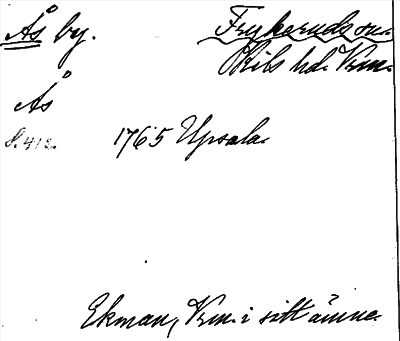 Ås by. Frykeruds sn.
Kils hd. Vrm.
Ås
S. 412. 1765 Upsala.
Ekman, Vrm. i sitt ämne.